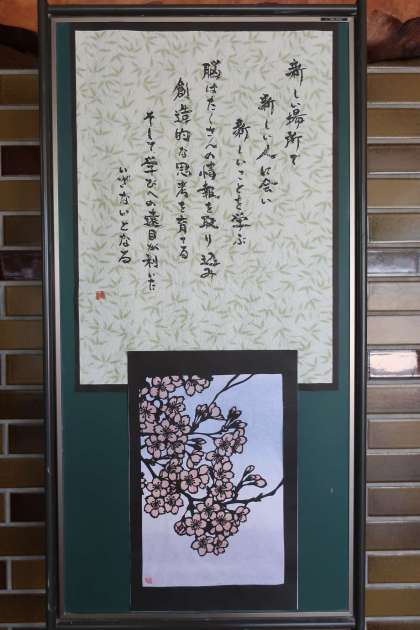 新しい場所で
新しい人に会い
新しいことを学ぶ
脳はたくさんの情報を取り込み
創造的な思考を育てる
そして学びへの遠目が利いた
いざないとなる